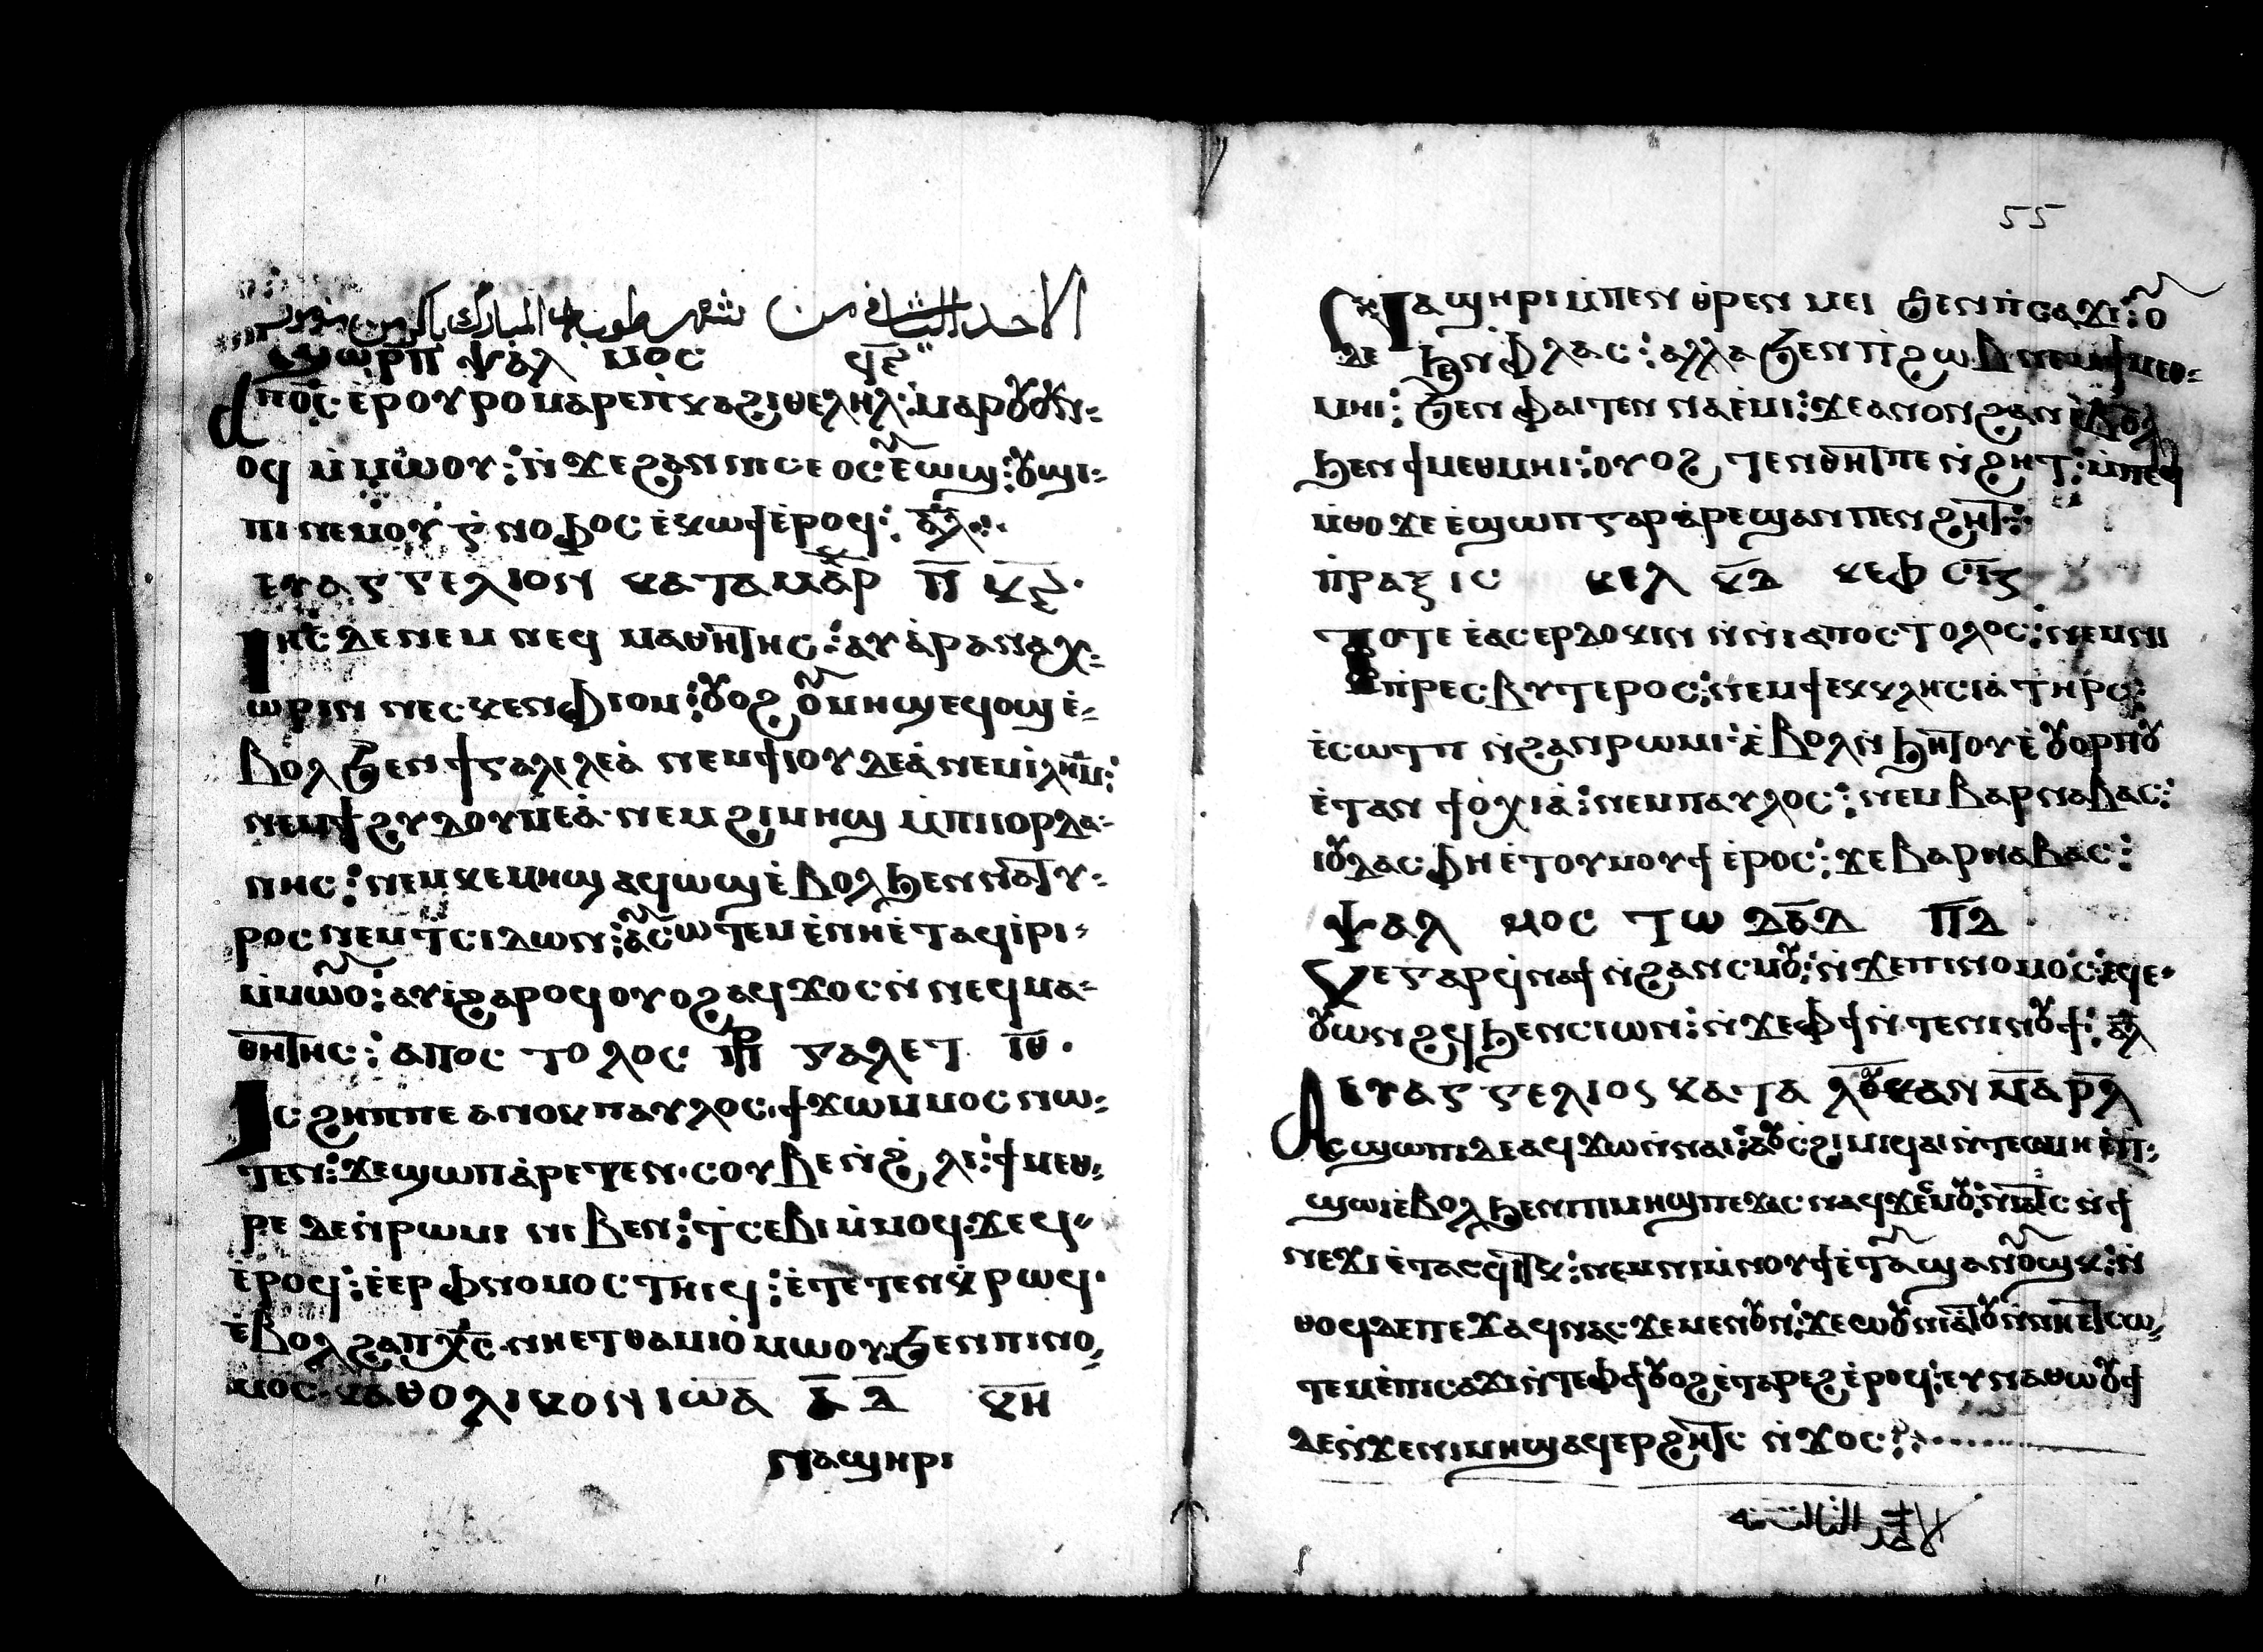 الاحد الثانى من شهر طوبه المبارك باكر من مزمور
ϣⲱⲣⲡ ⲯⲁⲗ ⲙⲟⲥ ϥ̅ⲋ̅
ⲁⲡⲟ̅ⲥ̅ ⲉ̀ⲣⲟⲩⲣⲟ ⲙⲁⲣⲉⲡ̀ⲕⲁϩⲓ ⲑⲉⲗⲏⲗ: ⲙⲁⲣⲟⲩⲟⲩⲛ-
ⲟϥ ⲙ̀ⲙⲱⲟⲩ: ⲛ̀ϫⲉϩⲁⲛⲛⲏⲥⲉⲟⲥ ⲉⲩⲟϣ: ⲟⲩϭⲏ-
ⲡⲓ ⲛⲉⲙⲟⲩⲅ̀ⲛⲟⲫⲟⲥ ⲉ̀ⲕⲱϯ ⲉ̀ⲣⲟϥ: ⲁ̅ⲗ̅
ⲉⲩⲁⲅⲅⲉⲗⲓⲟⲛ ⲕⲁⲧⲁ ⲙⲁⲣⲕ ⲡ̅ ⲕ̅ⲋ̅
ⲓⲏ̅ⲥ̅ ⲇⲉ ⲛⲉⲙ ⲛⲉϥ ⲙⲁⲑⲏⲧⲏⲥ: ⲁⲩⲁ̀ⲣⲁⲛⲁⲭ-
ⲱⲣⲓⲛ ⲛⲉⲥⲕⲉⲛ ⲫⲓⲟⲙ: ⲟⲩⲟϩ ⲟⲩⲙⲏϣ ⲉϥⲟϣ ⲉ̀-
ⲃⲟⲗ ϧⲉⲛ ϯⲅⲁⲗⲓⲗⲉⲁ̀ ⲛⲉⲙ ϯⲓⲟⲩⲇⲉⲁ̀ ⲛⲉⲙ ⲓ̀ⲗⲏ̅ⲙ̅:
ⲛⲉⲙ ϯϩⲩⲇⲟⲩⲙⲉⲁ̀ ⲛⲉⲙ ϩⲓⲙⲏϣ ⲙ̀ⲡⲓⲓⲟⲣⲇⲁ-
ⲛⲏⲥ: ⲛⲉⲙ ⲕⲉⲙⲏϣ ⲁϥⲱϣ ⲉ̀ⲃⲟⲗ ϧⲉⲛ ⲛⲁⲧⲩ-
ⲣⲟⲥ ⲛⲉⲙ ⲧ̀ⲥⲓⲇⲱⲛ: ⲁⲩⲥⲱⲧⲉⲙ ⲉ̀ⲛⲏⲉ̀ⲧⲁϥⲓ̀ⲣⲓ-
ⲙ̀ⲙⲱⲟⲩ: ⲁⲩⲓ̀ϩⲁⲣⲟϥ ⲟⲩⲟϩ ⲁϥϫⲟⲥ ⲛ̀ⲛⲉϥⲙⲁ-
ⲑⲏⲧⲏⲥ: ⲁⲡⲟⲥ ⲧⲟ ⲗⲟⲥ ⲡⲣ ⲅⲁⲗⲉⲧ ⲓ̅ⲑ̅
ⲓⲥ ϩⲏⲡⲡⲉ ⲁⲛⲟⲕ ⲡⲁⲩⲗⲟⲥ ϯϫⲱ ⲙ̀ⲙⲟⲥ ⲛⲱ-
ⲧⲉⲛ: ϫⲉ ϣⲱⲡ ⲁ̀ⲣⲉⲧⲉⲛ ⲥⲟⲩⲃⲉ ⲛ̀ϩ̀ⲗⲓ: ϯⲙⲉⲑ-
ⲣⲉ ⲇⲉ ⲛ̀ⲣⲱⲙⲓ ⲛⲓⲃⲉⲛ: ⲧ̀ⲥⲉⲃⲓ ⲙ̀ⲙⲟϥ ϫⲉ ϥ
ⲉ̀ⲣⲟϥ: ⲉ̀ⲉⲣ ⲫⲛⲟⲙⲟⲥ ⲧⲏⲓϥ: ⲉ̀ⲧⲉⲧⲉⲛⲕ̀ⲣⲱϥ
ⲉ̀ⲃⲟⲗ ϩⲁ ⲡⲭ̅ⲥ̅ ⲛⲏⲉⲧⲑⲁⲙⲓⲟ̀ ⲙ̀ⲙⲱⲟⲩ ϧⲉⲛ ⲡⲓⲛⲟ-
ⲙⲟⲥ ⲕⲁⲑⲟⲗⲓⲕⲟⲛ ⲓⲱⲁ ⲁ̅ ⲇ̅ ⲕ̅ⲏ̅
ⲛⲁϣⲏⲣⲓ
55
ⲛⲁϣⲏⲣⲓ ⲙ̀ⲡⲉⲛⲑ̀ⲣⲉⲛⲙⲉⲓ ϧⲉⲛ ⲡ̀ⲥⲁϫⲓ: ⲟⲩ
ⲇⲉ ϧⲉⲛ ⲫⲗⲁⲥ: ⲁⲗⲗⲁ ϧⲉⲛ ⲡϩⲱⲃ ⲛⲉⲙ ϯⲙⲉⲑ-
ⲙⲏⲓ: ϧⲉⲛ ⲫⲁⲓ ⲧⲉⲛⲛⲁⲉ̀ⲙⲓ: ϫⲉ ⲁⲛⲟⲛ ϩⲁⲛ ⲉ̀ⲃⲟⲗ
ϧⲉⲛ ϯⲙⲉⲑⲙⲏⲓ: ⲟⲩⲟϩ ⲧⲉⲛⲑⲏⲧ ⲡⲉⲛϩⲏⲧ: ⲙ̀ⲡⲉϥ
ⲙ̀ⲑⲟ ϫⲉ ⲉ̀ϣⲱⲡ ⲅⲁⲣ ⲁ̀ⲣⲉϣⲁⲛ ⲡⲉⲛϩⲏⲧ:
ⲡ̀ⲣⲁⲝⲓⲥ ⲕⲉⲗ ⲕ̅ⲇ̅ ⲕⲉⲫ ⲥ̅ⲓ̅ⲋ̅
ⲧⲟⲧⲉ ⲉ̀ⲁⲥⲉⲣⲇⲟⲕⲓⲛ ⲛ̀ⲛⲓⲁⲡⲟⲥⲧⲟⲗⲟⲥ: ⲛⲉⲙ ⲛⲓ
ⲡ̀ⲣⲉⲥⲃⲩⲧⲉⲣⲟⲥ: ⲛⲉⲙ ϯⲉⲕⲕⲗⲏⲥⲓⲁ̀ ⲧⲏⲣⲥ:
ⲉ̀ⲥⲱⲧⲡ ⲛ̀ϩⲁⲛⲣⲱⲙⲓ ⲉ̀ⲃⲟⲗ ⲛ̀ϧⲏⲧⲟⲩ ⲉ̀ⲟⲩⲟⲣⲡⲟⲩ
ⲉ̀ⲧⲁⲛϯⲟⲭⲓⲁ̀: ⲛⲉⲙ ⲡⲁⲩⲗⲟⲥ: ⲛⲉⲙ ⲃⲁⲣⲛⲁⲃⲁⲥ:
ⲓⲟⲩⲇⲁⲥ ⲫⲏⲉ̀ⲧⲟⲩⲙⲟⲩϯ ⲉ̀ⲣⲟⲥ: ϫⲉ ⲃⲁⲣⲛⲁⲃⲁⲥ:
ⲯⲁⲗ ⲙⲟⲥ ⲧⲱ ⲇⲁ̅ⲇ̅ ⲡ̅ⲇ̅
ⲕⲉ ⲅⲁⲣ ϥ̀ⲛⲁϯ ⲛ̀ϩⲁⲛⲥⲙⲟⲩ: ⲛ̀ϫⲉ ⲡⲓⲛⲟⲙⲟⲥ: ⲉϥⲉ-
ⲟⲩⲱⲛϩϥ ϧⲉⲛ ⲥⲓⲱⲛ: ⲛ̀ϫⲉ ⲫϯ ⲛ̀ⲧⲉ ⲛⲓⲛⲟⲩϯ: ⲁ̅ⲗ̅
ⲉⲩⲁⲅⲅⲉⲗⲓⲟⲥ ⲕⲁⲧⲁ ⲗⲟⲩⲕⲁⲛ ⲙ̅ ⲁⲣⲗ
ⲁⲥϣⲱⲡⲓ ⲇⲉ ⲁϥϫⲱ ⲛ̀ⲛⲁⲓ: ⲁⲟⲩⲥϩⲓⲙⲓ ϥⲁⲓ ⲛ̀ⲧⲉⲥⲙⲏ ⲉ̀ⲡ-
ϣⲱⲓ ⲉ̀ⲃⲟⲗ ϧⲉⲛ ⲡⲓⲙⲏϣ ⲡⲉϫⲁⲥ ⲛⲁϥ ϫⲉ ⲱⲟⲩⲛⲓⲁⲧⲥ ⲛ̀ϯ
ⲛⲉϫⲓ ⲉ̀ⲧⲁⲥϥⲓⲧⲕ: ⲛⲉⲙ ⲛⲓⲙ̀ⲛⲟⲩϯ ⲉ̀ⲧⲁⲩϣⲁⲛⲟⲩϣⲕ: ⲛ̀
ⲑⲟϥ ⲇⲉ ⲡⲉϫⲁϥ ⲛⲁⲥ ϫⲉ ⲙⲉⲛⲟⲩⲛ: ϫⲉ ⲱⲟⲩⲛⲓⲁⲧⲟⲩ ⲛ̀ⲛⲏⲉⲧⲥⲱ-
ⲧⲉⲙ ⲉ̀ⲡⲓⲥⲁϫⲓ ⲛ̀ⲧⲉ ⲫϯ ⲟⲩⲟϩ ⲉⲧⲁⲣⲉϩ ⲉ̀ⲣⲟϥ: ⲉⲩⲛⲁⲑⲱⲟⲩϯ
ⲇⲉ ⲛ̀ϫⲉ ⲛⲓⲙⲏϣ ⲁϥⲉⲣϩⲏⲧⲥ ⲛ̀ϫⲟⲥ:
الاحد الثالث منه